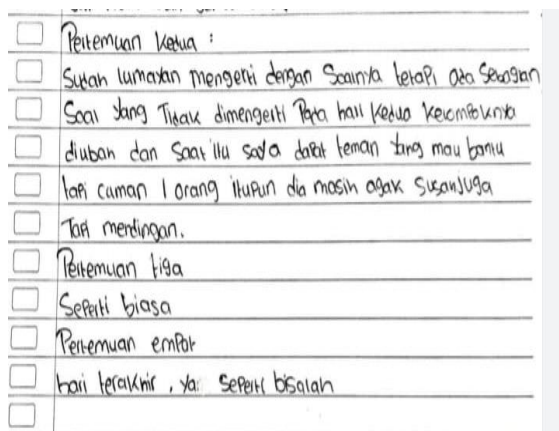 Pertemuan kedua :
Sudah lumayan mengerti dengan Soalnya tetapi ada Sebagian
Soal yang Tidak dimengerti Pada hari kedua kelompoknya
diubah dan Saat itu saya dapat teman yang mau bantu
tapi cuman 1 orang itupun dia masih agak susah juga
Tapi mendingan.
Pertemuan tiga
Seperti biasa
Pertemuan empat
hari terakhir, ya seperti bisalah